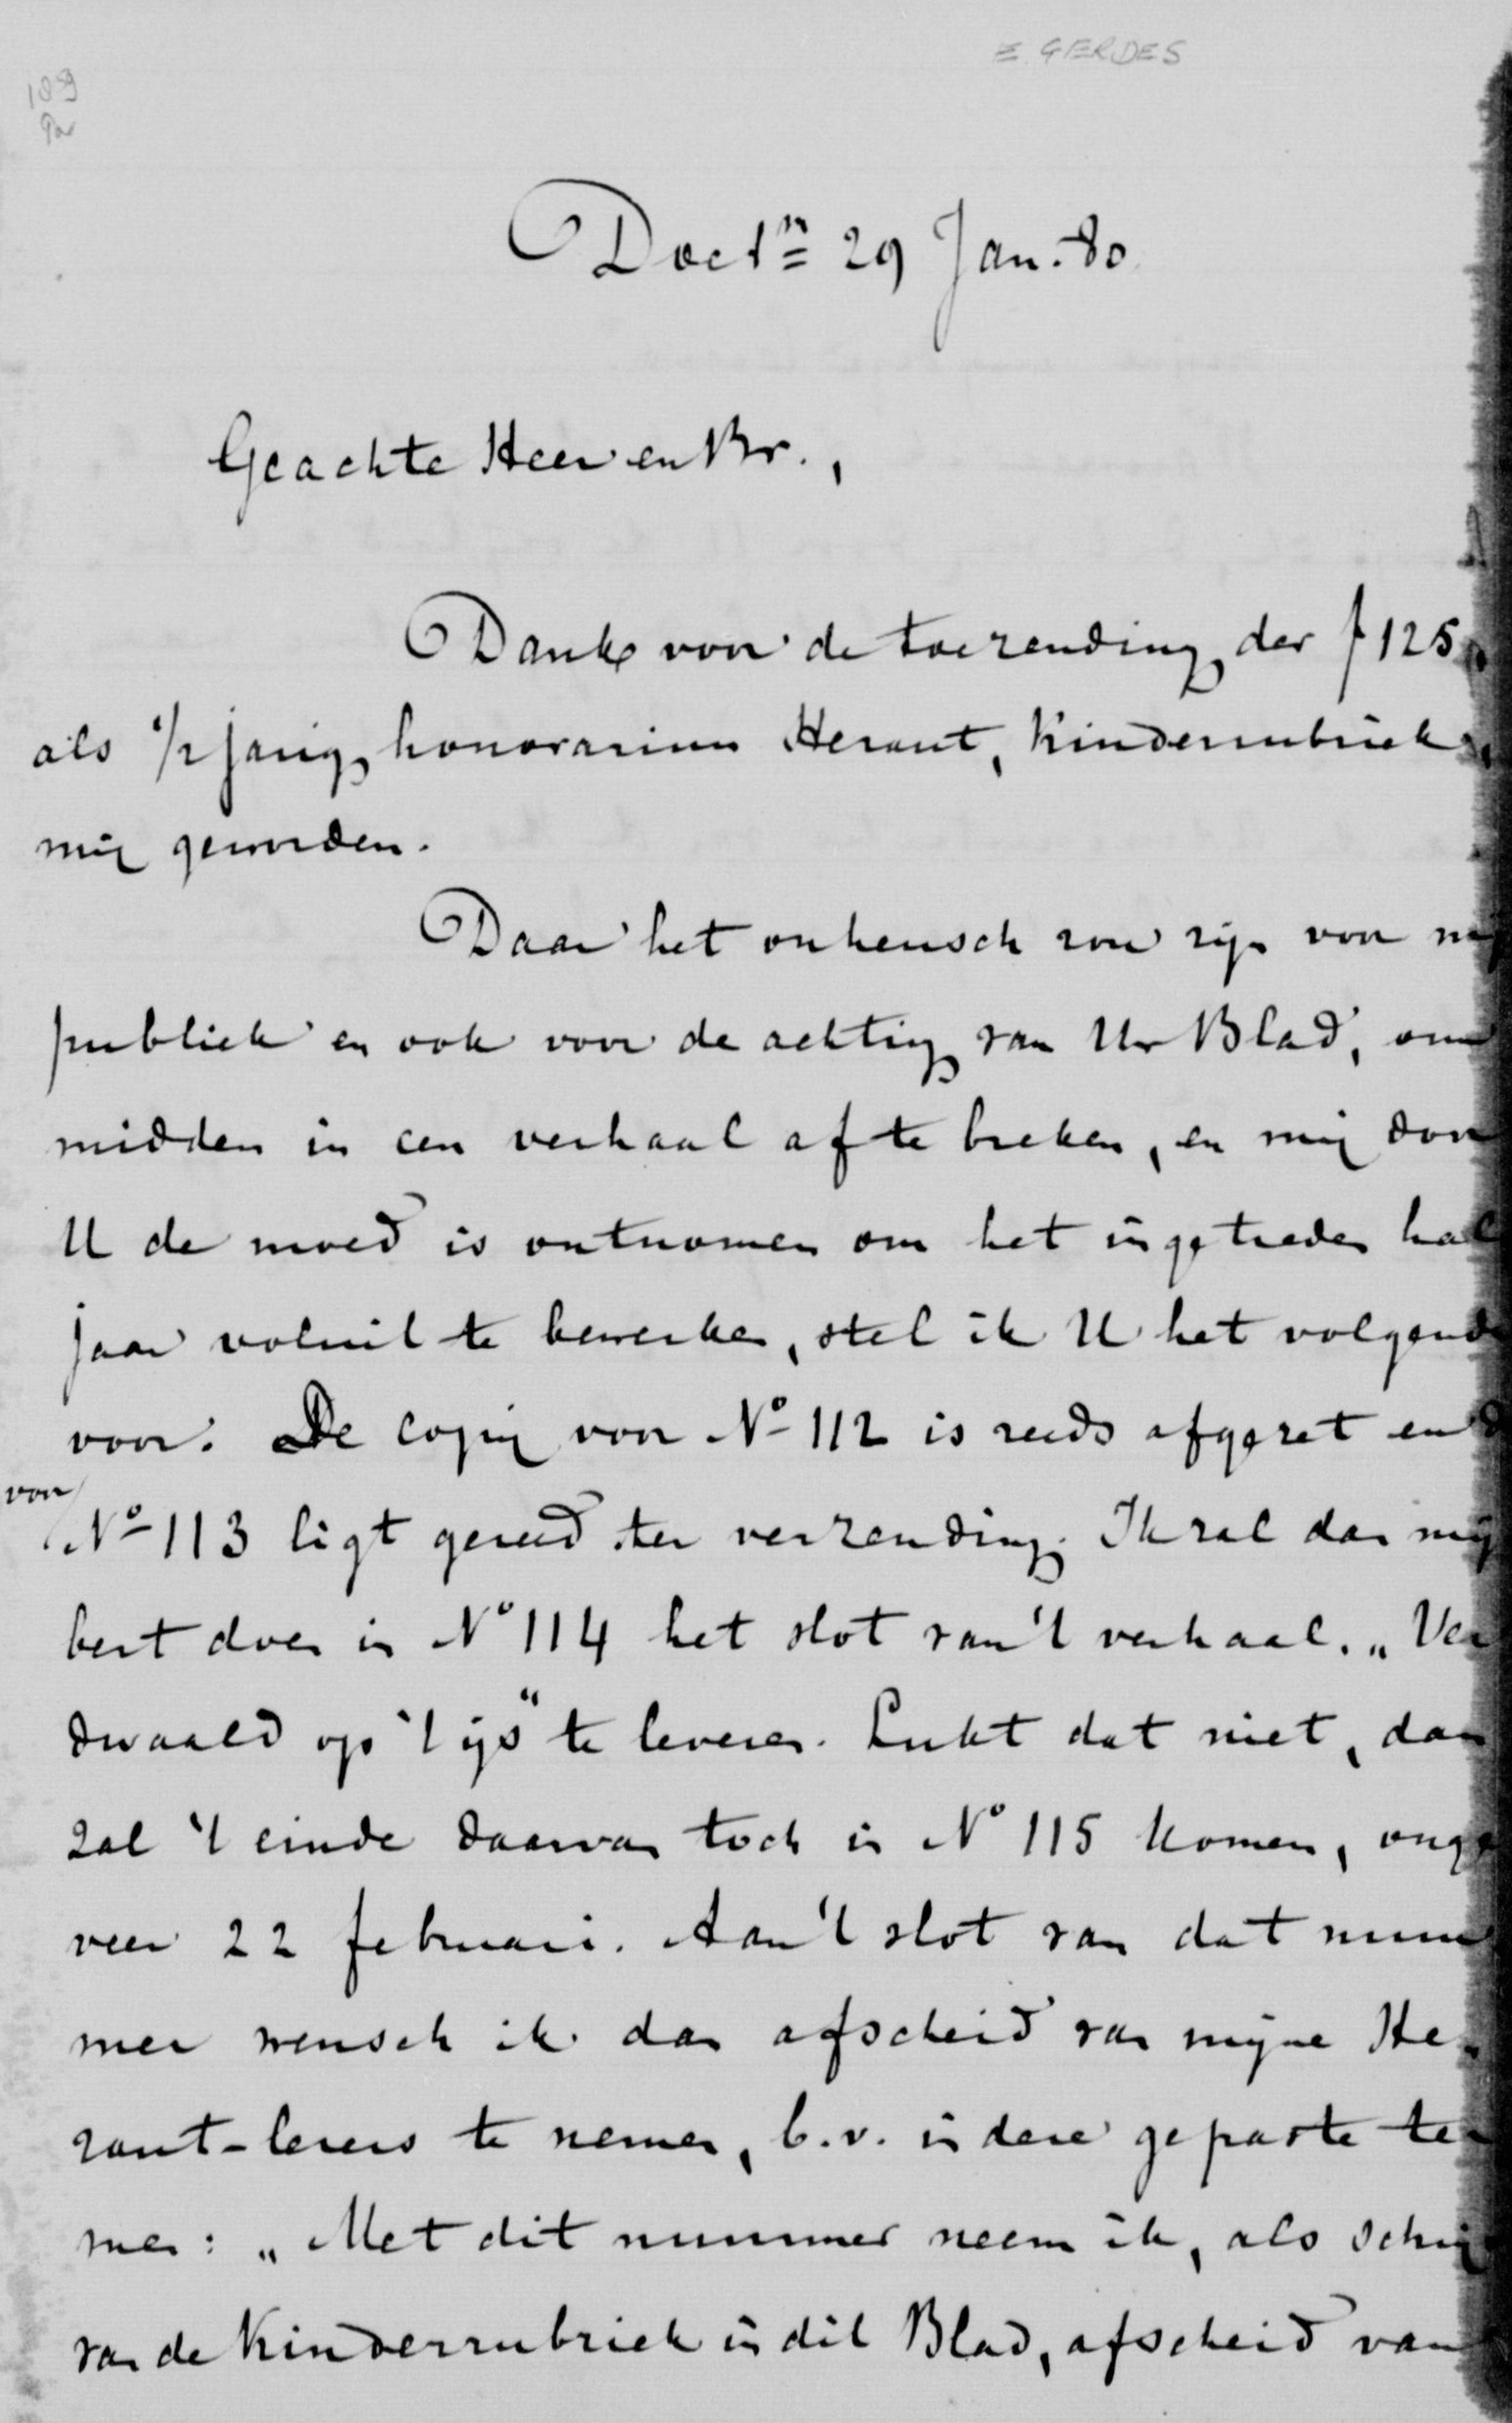 E. GERDES
109
Doet.ⁿ 29 Jan. 80.
Geachte Heer en Br.,
Dank voor de toezending der ƒ 125
als ½ jarig honorarium Heraut, Kinderrubriek,
mij geworden.
Daar het onheusch zou zijn voor mij
publiek en ook voor de achting van Uw Blad, om
midden in een verhaal af te breken, en mij door
U de moed is ontnomen om het ingetreden hal
jaar voluit te bewerken, stel ik U het volgende
voor. De copij voor Nº 112 is reeds afgezet en d
voor
Nº 113 ligt gereed ter verzending. Ik zal dan mij
best doen in Nº 114 het slot van 't verhaal. „Ver
dwaald op 't ijs" te leveren. Lukt dat niet, dan
zal 't einde daarvan toch in Nº 115 komen, onge
veer 22 februari. Aan 't slot van dat num
mer wensch ik dan afscheid van mijne He-
raut-lezers te nemen, b.v. in deze gepaste ter
men: „Met dit nummer neem ik, als schrij
van de Kinderrubriek in dit Blad, afscheid van